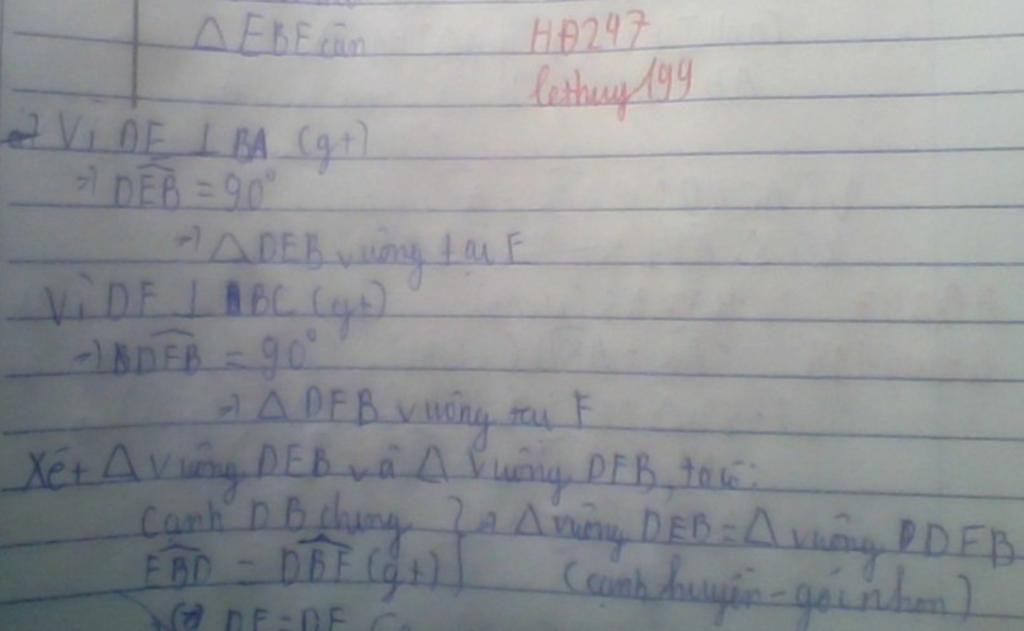 △EBF cân
HĐ247
lethuy199
=> Vì DE ⊥ BA (gt)
=> DEB = 90°
=> △DEB vuông tại E
Vì DF ⊥ BC (gt)
=> DFB = 90°
=> △DFB vuông tại F
Xét △ vuông DEB và △ vuông DFB, ta có:
Cạnh DB chung } => △ vuông DEB = △ vuông DFB
EBD = DBF (gt) } (cạnh huyền - góc nhọn)
=> DE = DF